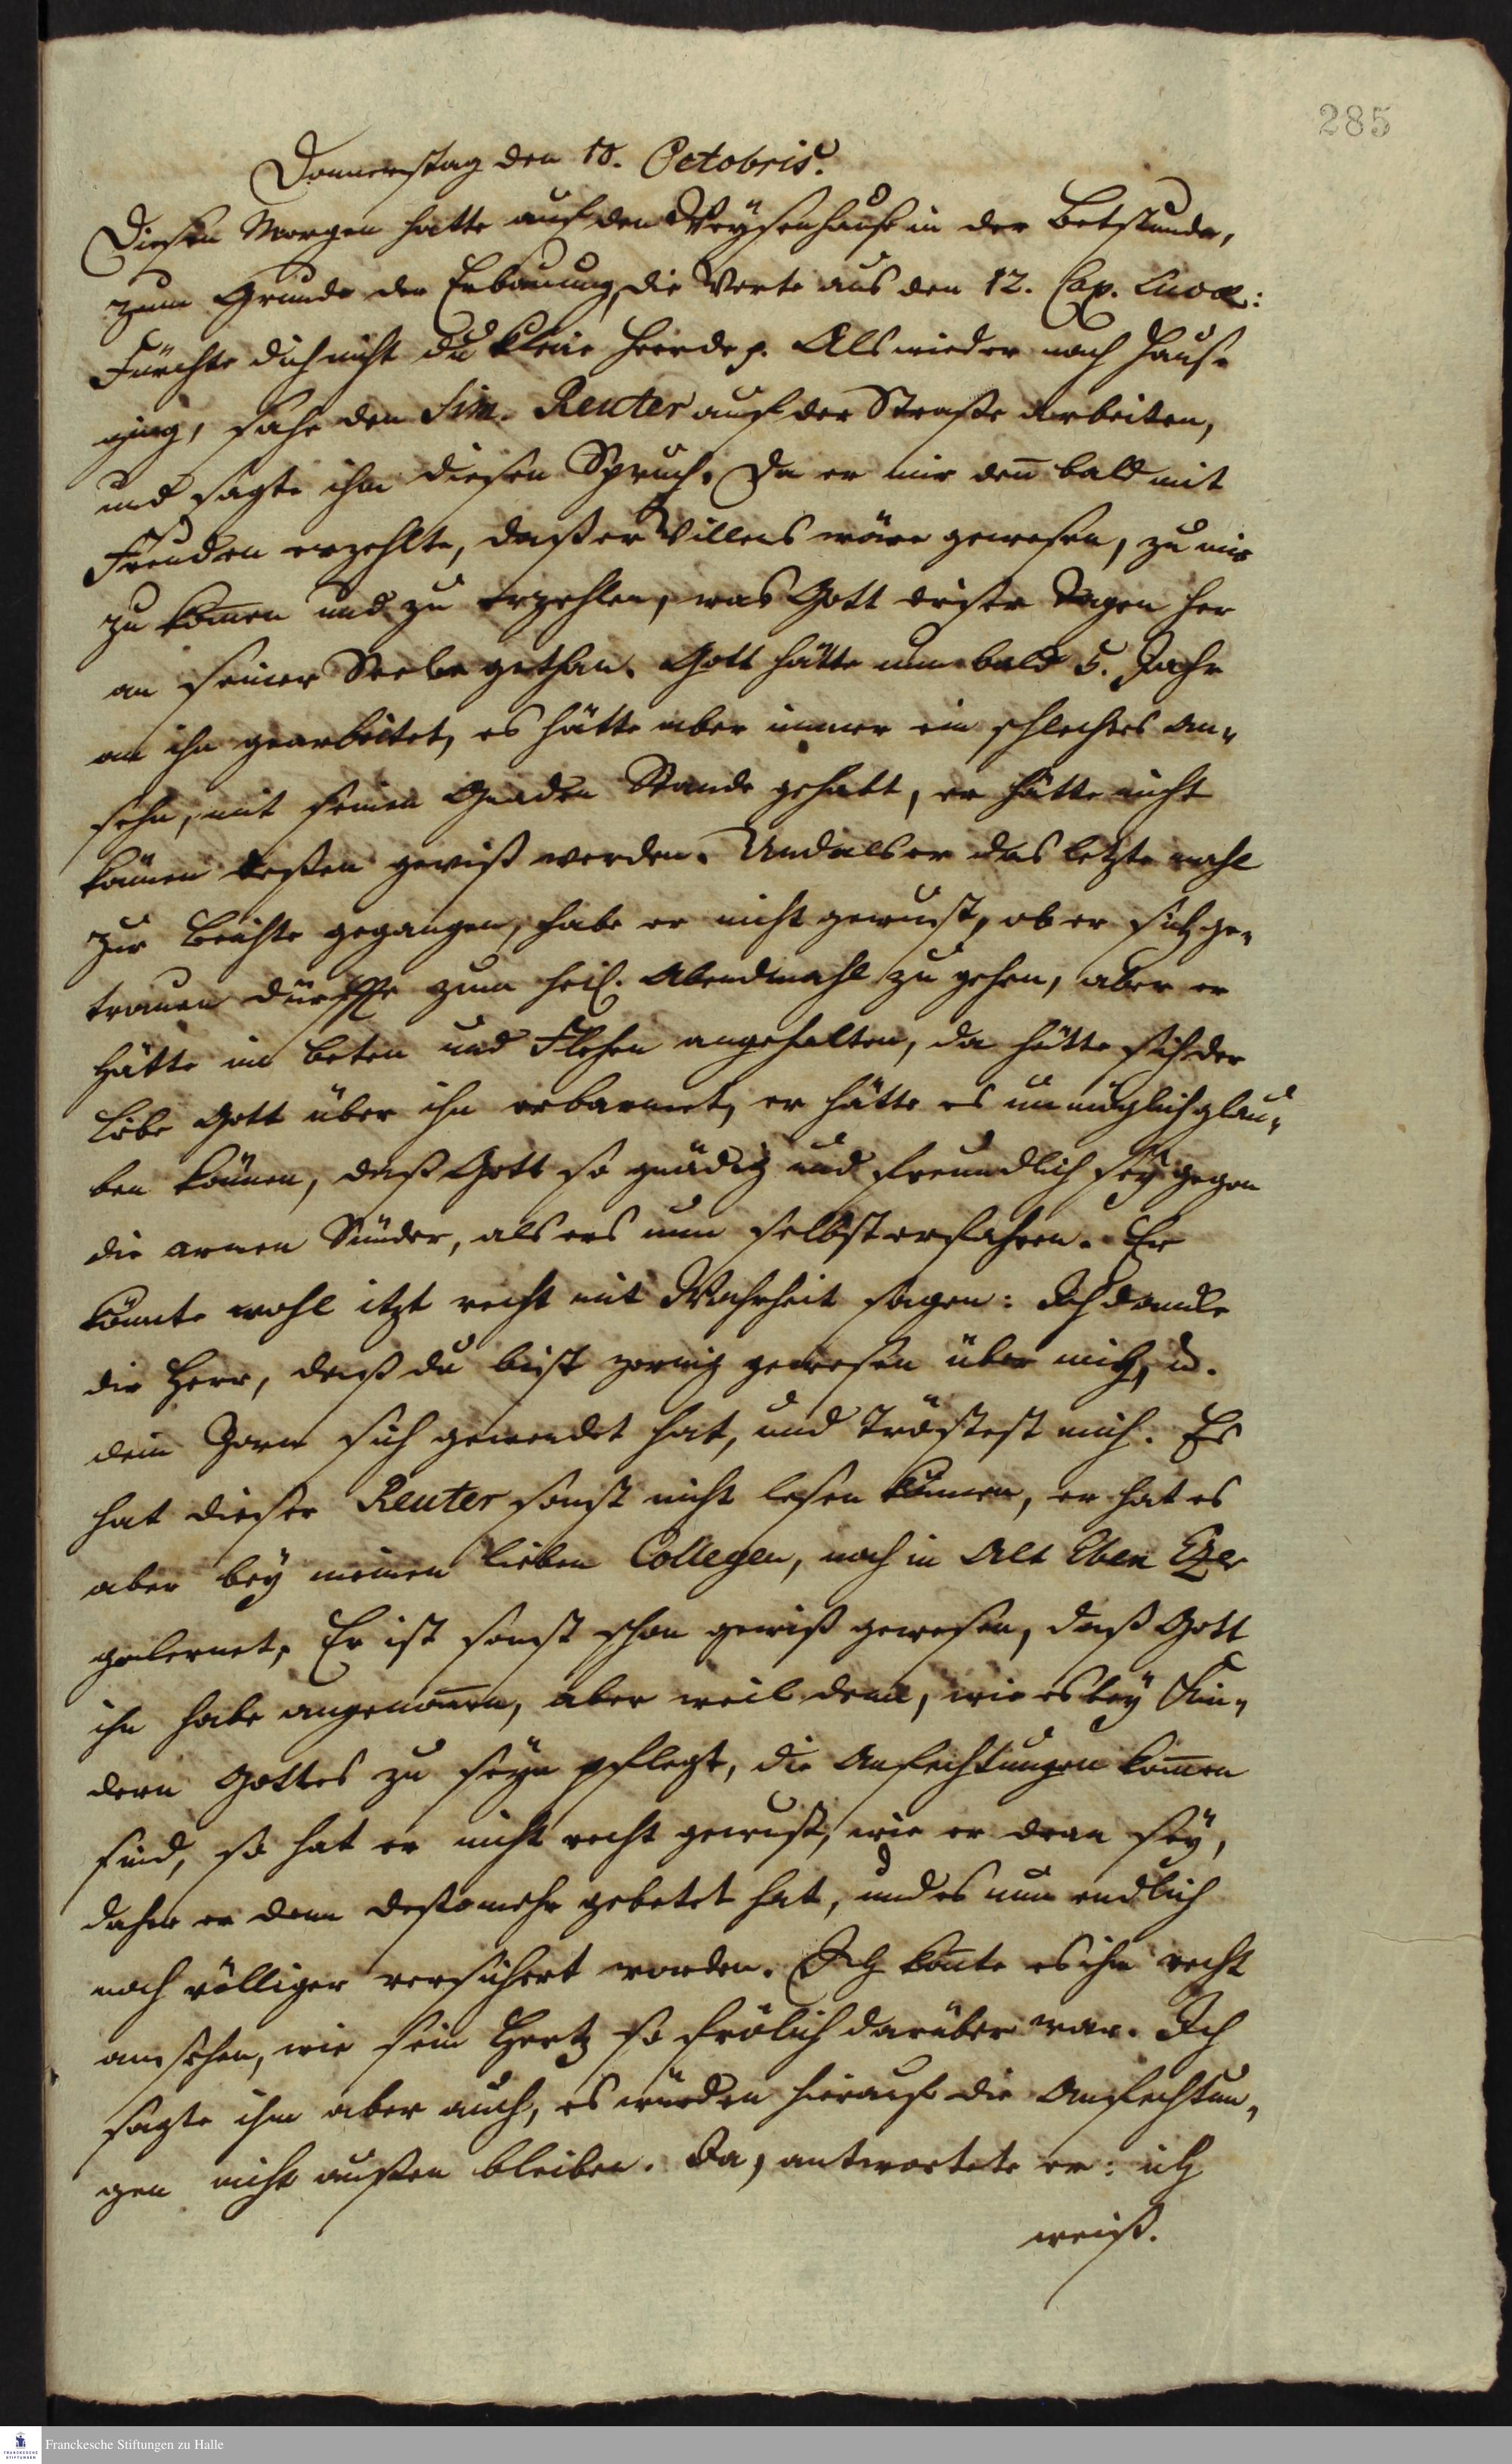 285
Donnerstag den 18. Octobris.
Diesen Morgen hatte auf den Weÿsenhause in der Betstunde,
zum Grunde der Erbauung, die Worte aus den 12. Cap. Lucæ:
Fürchte dich nicht du kleine Heerde p. Als wieder nach Hause
ging, sahe den Sim. Reuter auf der Straße arbeiten,
und sagte ihm diesen Spruch. Da er mir deñ bald mit
Freuden erzehlte, daß er Willens wäre gewesen, zu mir
zu kom̃en und zu erzehlen, was Gott dieser Tagen her
an seiner Seele gethan. Gott hätte nun bald 5. Jahr
an ihn gearbeitet, es hätte aber immer ein schlechtes An-
sehn, mit seinen Gnaden Stande gehabt, er hätte nicht
können deßen gewiß werden. Und als er das letzte mahl
zur Beichte gegangen, habe er nicht gewust, ob er sich ge-
trauen dürffte zum heil. Abendmahl zu gehen, aber er
hätte im beten und Flehen angehalten, da hätte sich der
liebe Gott über ihn erbarmet, er hätte es unmöglich glau-
ben können, daß Gott so gnädig und freundlich seÿ gegen
die armen Sünder, als ers nun selbst erfahren. Er
könnte wohl itzt recht mit Wahrheit sagen: Ich dancke
dir Herr, daß du bist zornig gewesen über mich, u.
dein Zorn sich gewendet hat, und tröstest mich. Es
hat dieser Reuter sonst nicht lesen können, er hat es
aber beÿ meinen lieben Collegen, noch in Alt Eben Ezer
gelernet. Er ist sonst schon gewiß gewesen, daß Gott
ihn habe angenom̃en, aber weil denn, wie es beÿ Kin-
dern Gottes zu seÿn pflegt, die Anfechtungen kom̃en
sind, so hat er nicht recht gewust, wie er dran seÿ,
daher er denn destomehr gebetet hat, und es nun endlich
noch völliger versichert worden. Ich kon̄te es ihm recht
ansehen, wie sein Hertz so frölich darüber war. Ich
sagte ihm aber auch, es würden hierauf die Anfechtun-
gen nicht außen bleiben. Ja, antwortete er: ich
weiß.
Franckesche Stiftungen zu Halle